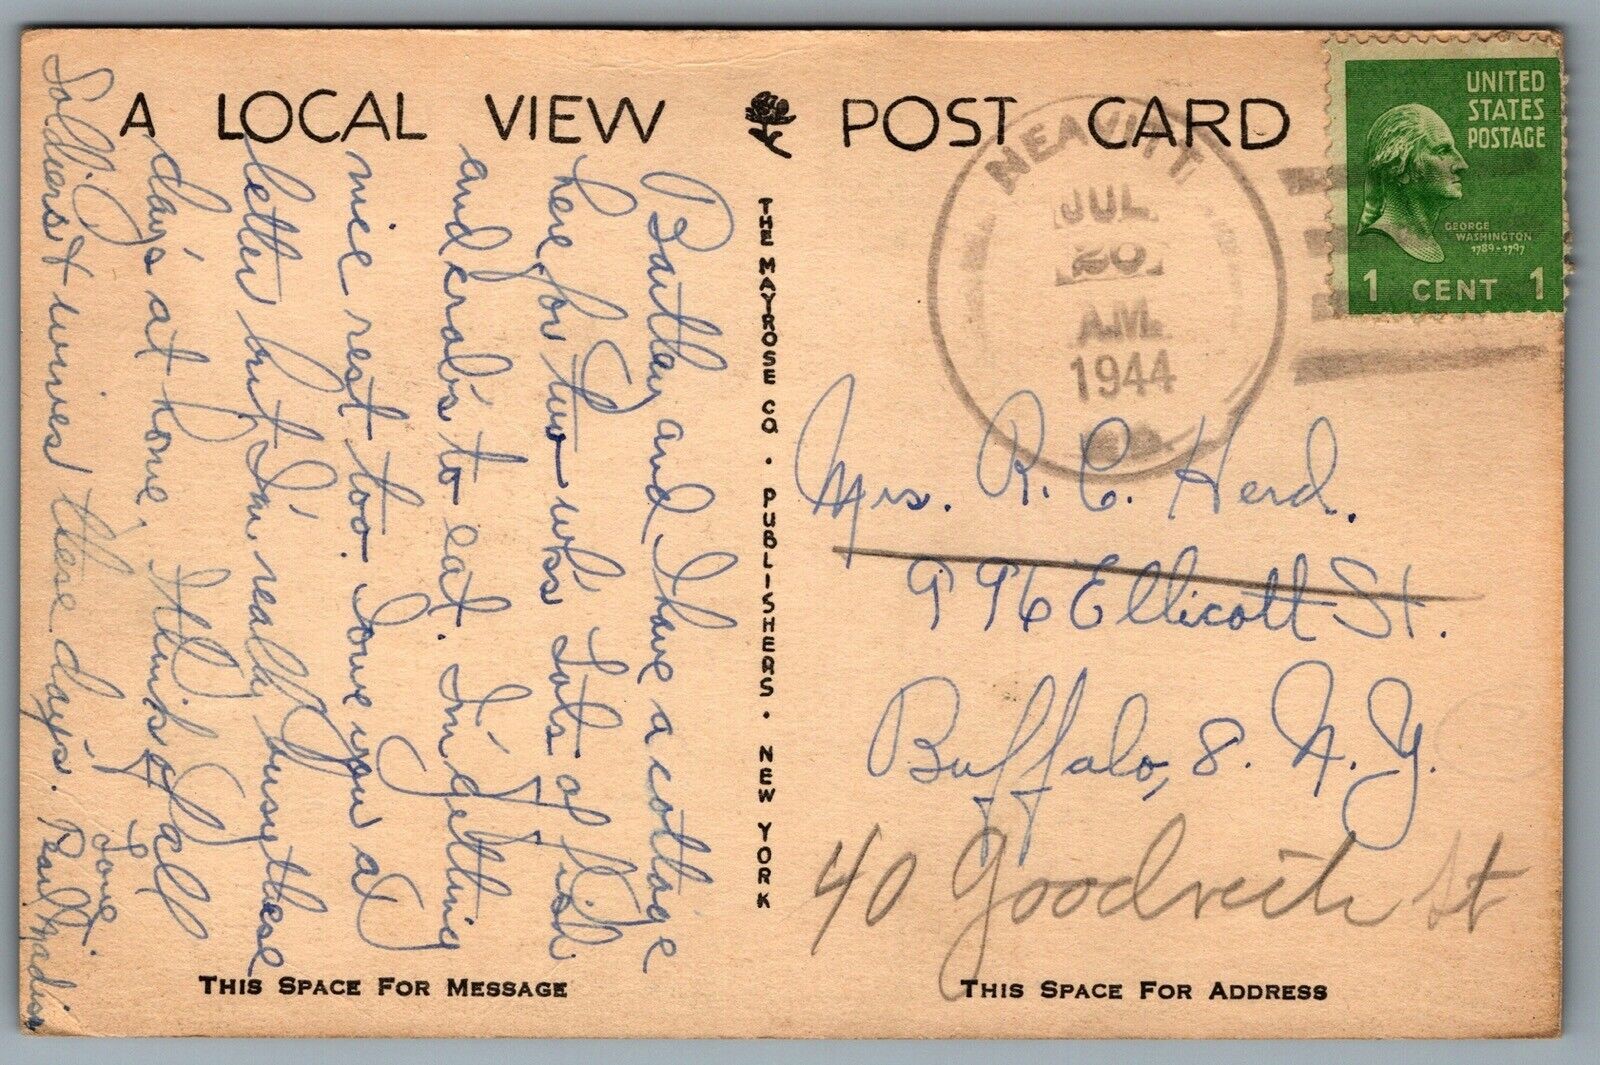 A LOCAL VIEW
POST CARD
Bartley and I have a cottage
here for two wks. Lots of fish
and crabs to eat. I'm getting
nice rest too. I owe you a
letter but I'm really busy these
days at home. I think of all
Soldiers & wives these days.
Love,
Pearl Madison
THE MAYROSE CO. PUBLISHERS. NEW YORK
THIS SPACE FOR MESSAGE
NEAVITT
JUL
20
A.M.
1944
MD.
UNITED
STATES
POSTAGE
GEORGE
WASHINGTON
1789-1797
1 CENT 1
Mrs. R. C. Herd.
996 Ellicott St.
Buffalo, 8. N. Y.
40 St
THIS SPACE FOR ADDRESS